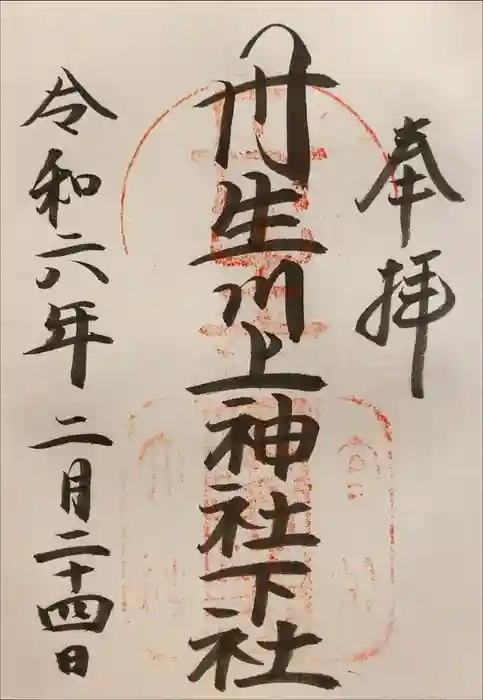 奉拝
丹生川上神社下社
令和六年 二月二十四日